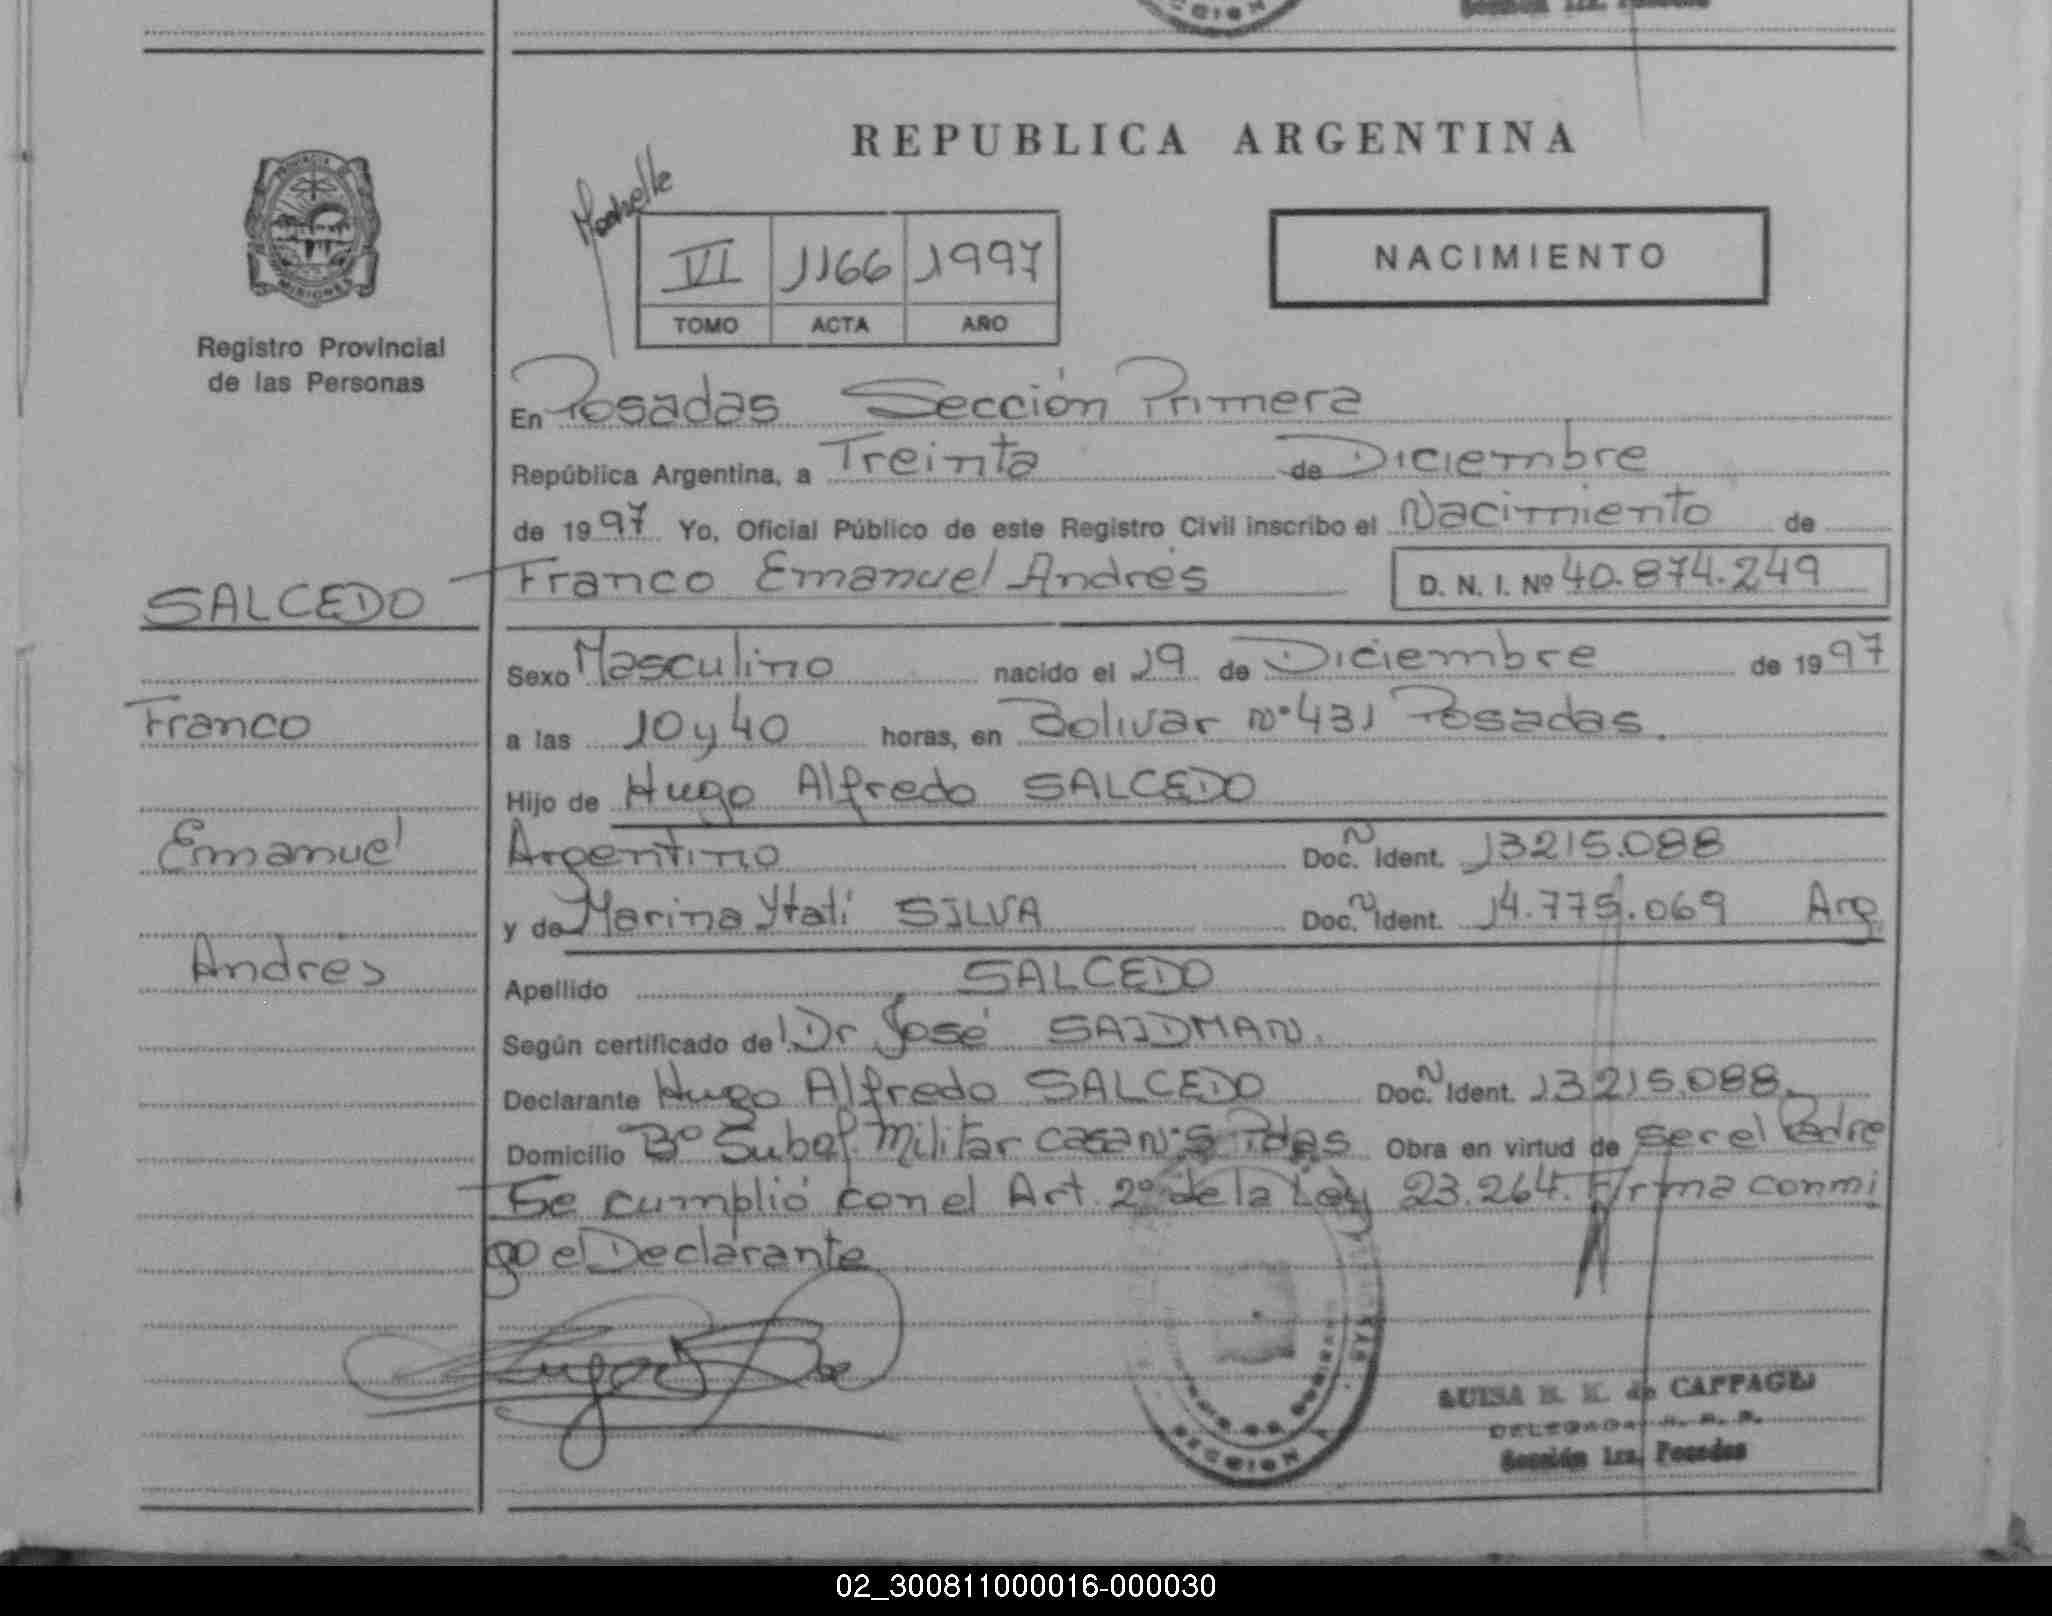 REPUBLICA ARGENTINA
PROVINCIA
MISIONES
Registro Provincial
de las Personas
VI 1166 1997
TOMO ACTA AÑO
NACIMIENTO
En Posadas Sección Primera
República Argentina, a Treinta de Diciembre
de 1997 Yo, Oficial Público de este Registro Civil inscribo el Nacimiento de
SALCEDO Franco Emanuel Andrés D. N. I. Nº 40.874.249
Sexo Masculino nacido el 29 de Diciembre de 1997
Franco a las 10 y 40 horas, en Bolivar nº 431 Posadas.
Hijo de Hugo Alfredo SALCEDO
Emanuel Argentino Doc. N Ident. 13215.088
y de Marina Ytatí SILVA Doc. N Ident. 14.775.069 Arg
Andrés Apellido SALCEDO
Según certificado de Dr José SAIDMAN.
Declarante Hugo Alfredo SALCEDO Doc. N Ident. 13215.088.
Domicilio Bº Subof. Militar casa Nº5 Pdas Obra en virtud de ser el Padre
Se cumplió con el Art. 2º de la Ley 23.264. Firma conmi
go el Declarante
LUISA de CAPPAGLI
DELEGADA R. P. P.
Sección 1ra. Posadas
02_300811000016-000030